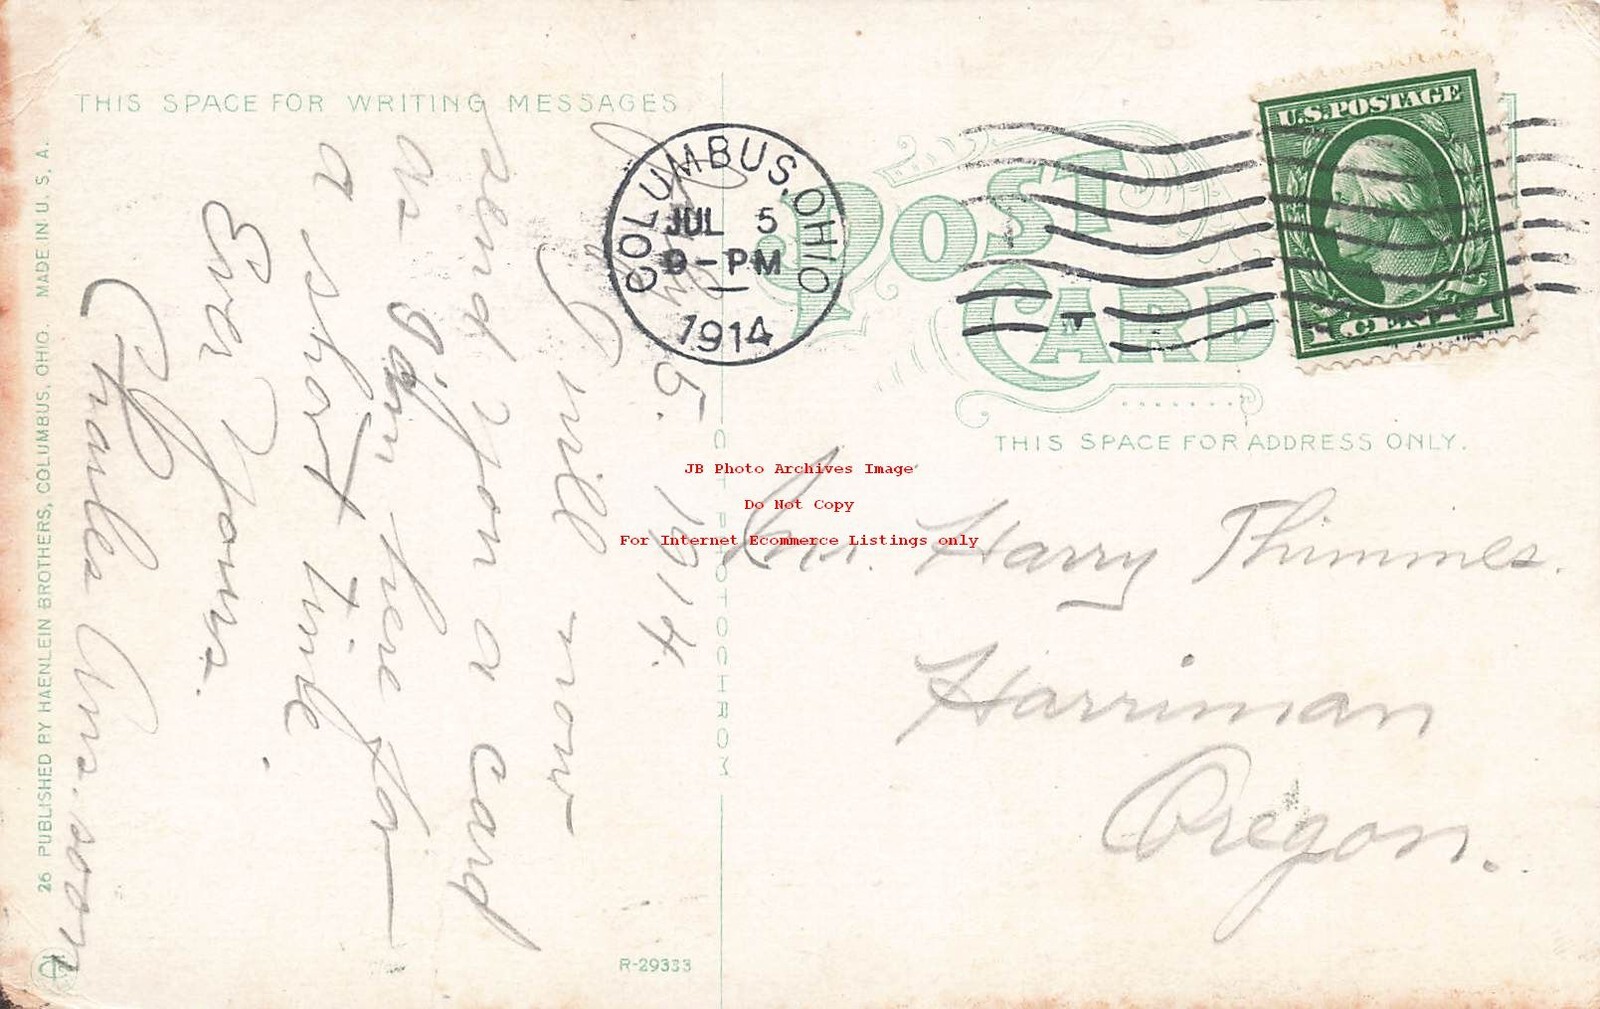 THIS SPACE FOR WRITING MESSAGES
July 5. 1914.
I will now
send you a card
as I am here for
a short time.
Ever Yours.
Charles
26 PUBLISHED BY HAENLEIN BROTHERS, COLUMBUS, OHIO. MADE IN U. S. A.
R-29333
OCTOCHROM
COLUMBUS, OHIO
JUL 5
9-PM
1914
POST
CARD
U.S. POSTAGE
1 CENT 1
THIS SPACE FOR ADDRESS ONLY.
JB Photo Archives Image
Do Not Copy
For Internet Ecommerce Listings only
Mr. Harry Thimmes.
Harriman
Oregon.